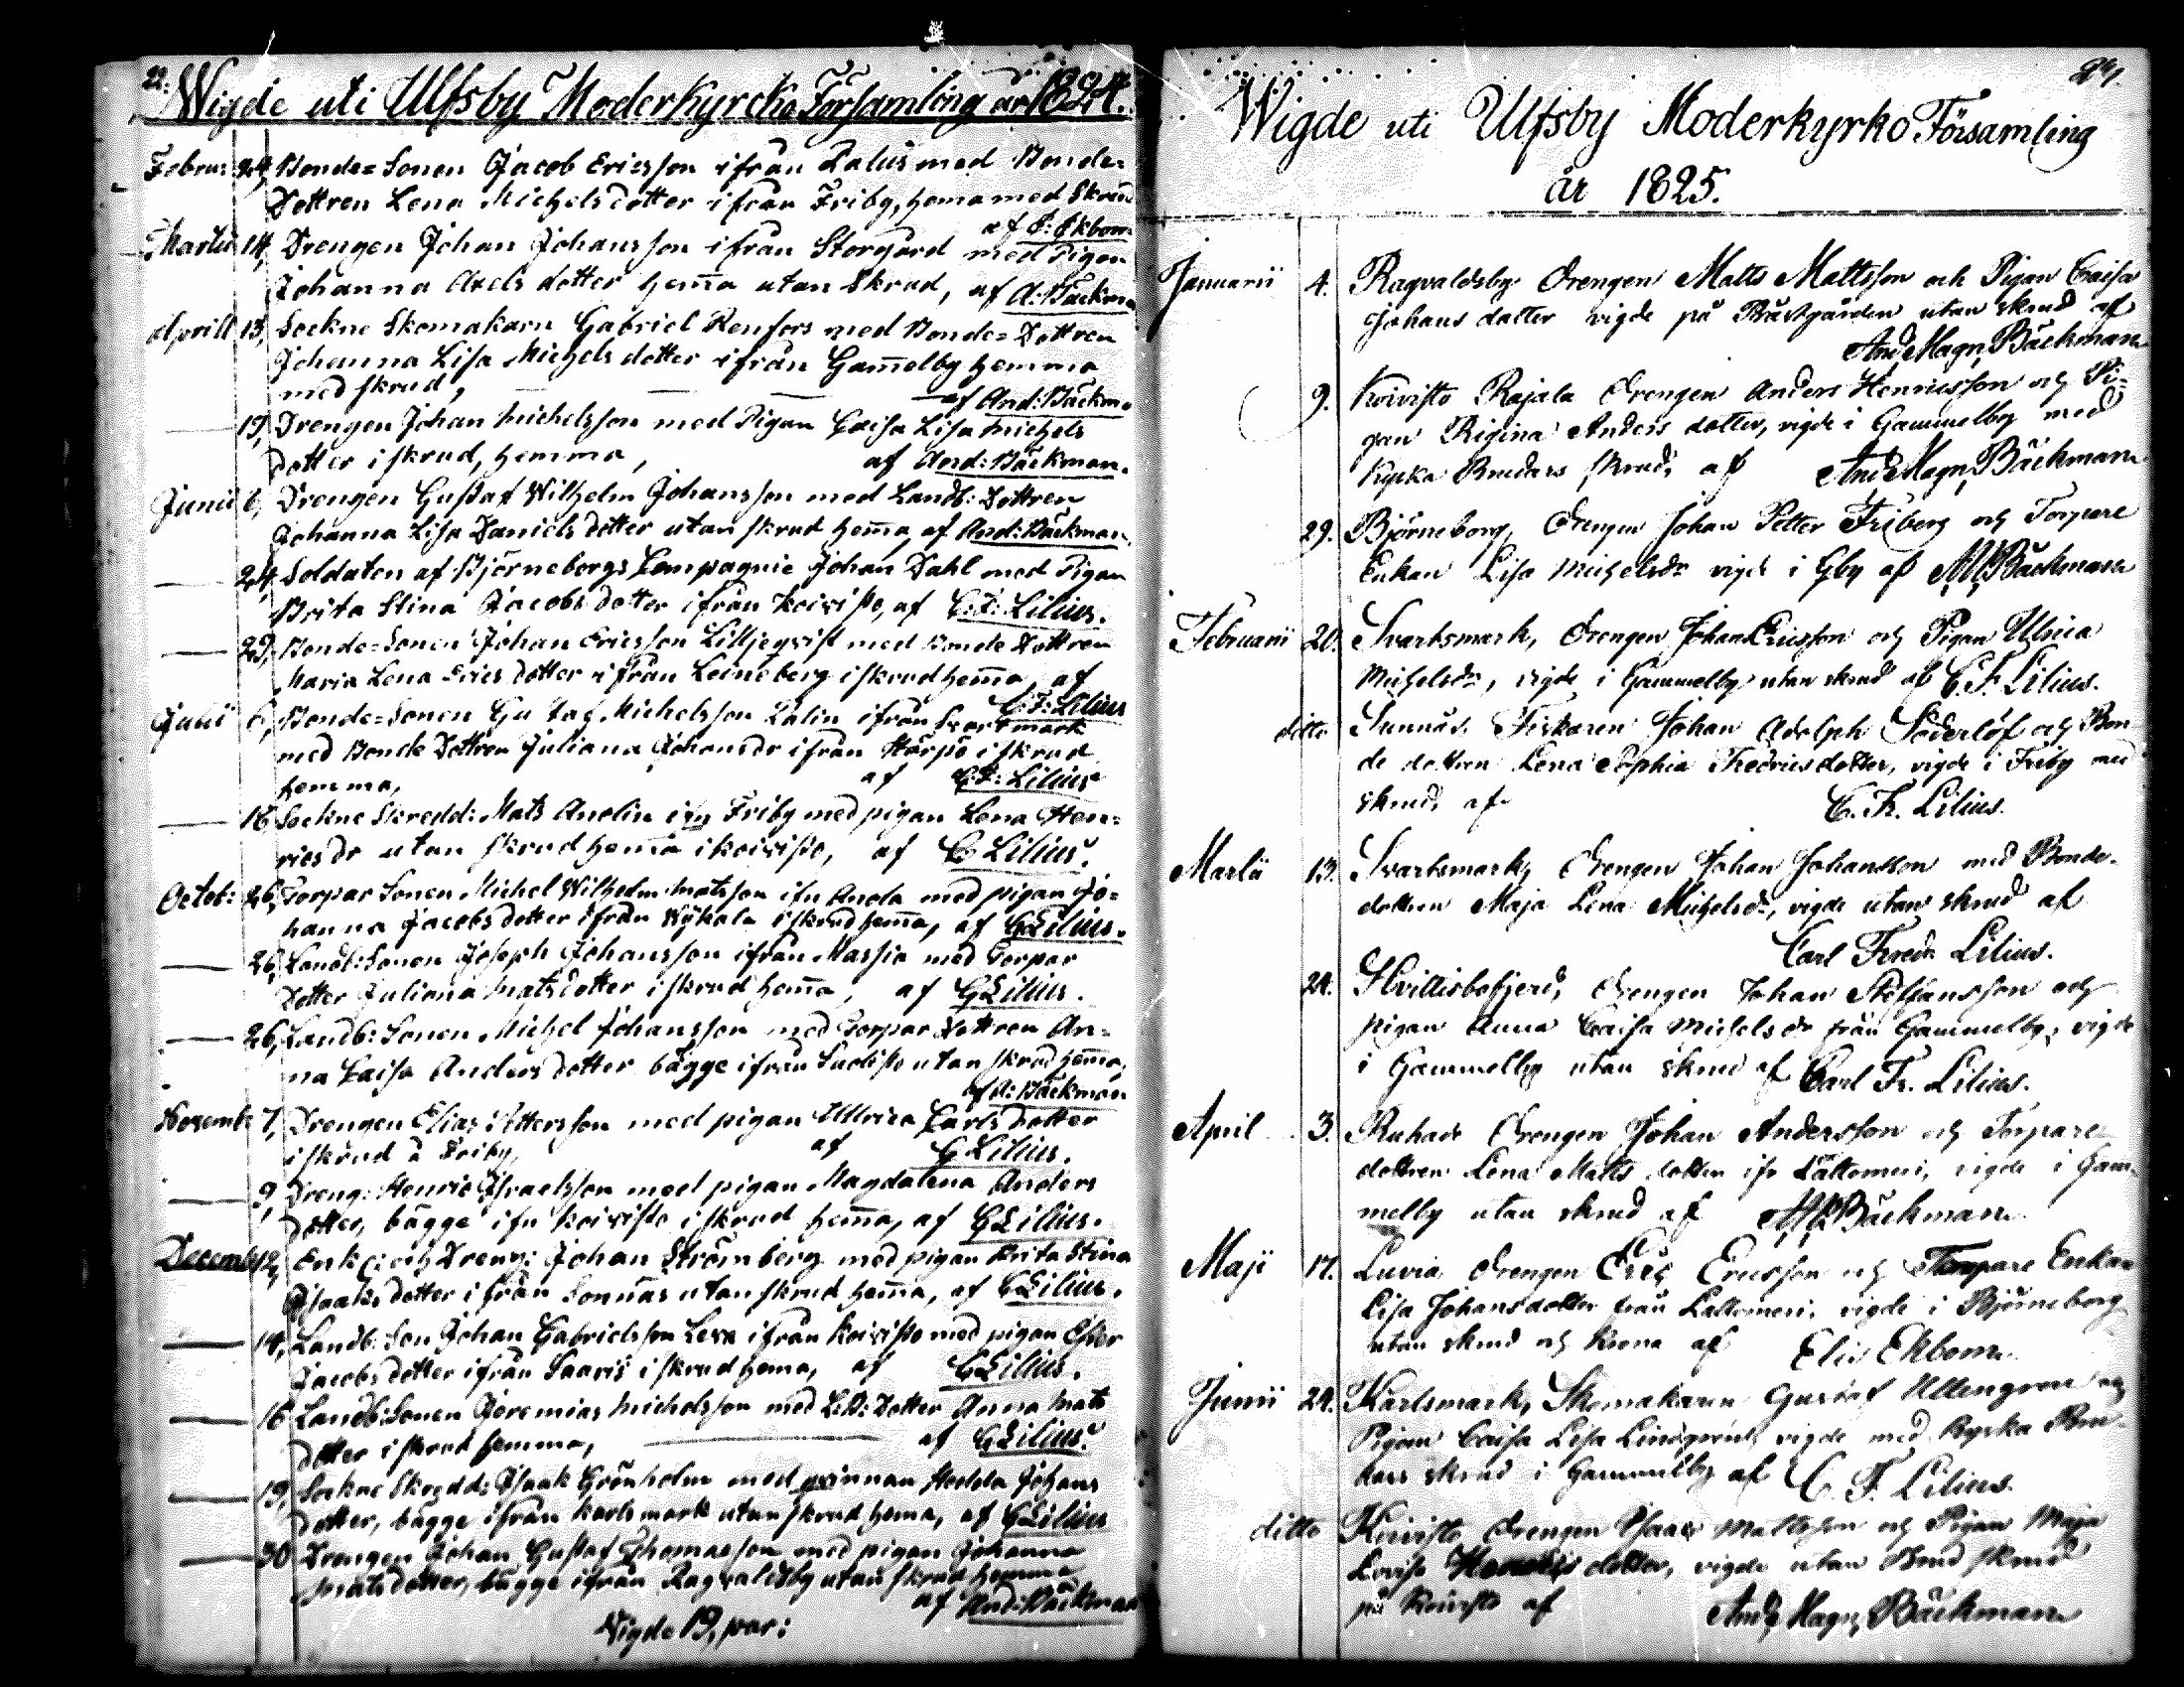 22.
Wigde uti Ulfsby Moderkyrcko Församling år 1824.
Febru: 24, Bonde=Sonen Jacob Ericsson ifrån Lalus med Bonde=
Dottren Lena Michelsdotter ifrån Friby, hema med Skrud
af E: Ekbom
Martii 14, Drengen Johan Johansson ifrån Storgård med Pigan
Johanna Axels dotter hem̄a utan Skrud, af A: Bäckman
Aprill 13, Sockne Skomakarn Gabriel Renfors med Bonde=Dottren
Johanna Lisa Michels dotter ifrån Gam̄elby hemma
med skrud, af And: Bäckm.
19, Drengen Johan Michelsson med Pigan Caisa Lisa Michels
dotter i skrud, hemma, af And: Bäckman.
Junii 6, Drengen Gustaf Wilhelm Johansson med Landb: Dottren
Johanna Lisa Daniels dotter utan skrud hem̄a, af And: Bäckman.
24, Soldaten af Björneborgs Compagnie Johan Dahl med Pigan
Brita Stina Jacobs dotter ifrån Koivisto, af C: F: Lilius.
29, Bonde=Sonen Johan Ericsson Lilljeqvist med Bonde Dottren
Maria Lena Erics dotter ifrån Leineberg i skrud hem̄a, af
C: F: Lilius
Julii 6, Bonde=Sonen Gustaf Michelsson Lalin ifrån Svartsmark
med Bonde Dottren Juliana Johansdr ifrån Härpö i skrud
hemma, af C: F: Lilius
16 Sockne Skredd: Mats Anolin ifn Friby med pigan Lena Hen=
ricsdr utan skrud hem̄a i Koivisto, af C Lilius.
Octob: 26, Torpar Sonen Michel Wilhelm Matsson ifn Anola med pigan Jo=
hanna Jacobs dotter ifrån Wykala i skrud hem̄a, af C Lilius.
26, Landb: Sonen Joseph Johansson ifrån Massia med Torpar
Dotter Juliana Mats dotter i skrud hem̄a, af C Lilius.
26, Landb: Sonen Michel Johansson med Torpar Dottren An=
na Caisa Anders dotter bägge ifrån Suosisto utan skrud hem̄a,
af A: Bäckman
Novemb: 7, Drengen Elias Pettersson med pigan Ullrica Carls dotter
i skrud å Friby, af C Lilius.
9, Dreng: Henric Israelsson med pigan Magdalena Anders
dotter, bägge ifn Koivisto i skrud hem̄a, af C Lilius.
Decemb 12, Enkl: och Dreng: Johan Strömberg med pigan Brita Stina
Isaaks dotter ifrån Sonnäs utan skrud hem̄a, af C Lilius.
14, Landb: Son Johan Gabrielsson Leva ifrån Koivisto med pigan Ester
Jacobs dotter ifrån Saaris i skrud hema, af C Lilius.
16 Landb: Sonen Jeremias Michelsson med L: B: Dotter Anna Mats
dotter i skrud hemma, af C Lilius.
19, Sockne Skredd: Isaak Grönholm med qvinnan Hedda Johans
dotter, bägge ifrån Karlsmark utan skrud hema, af C Lilius
30 Drengen Johan Gustaf Thomasson med pigan Johanna
Mats dotter, bägge ifrån Ragvaldsby utan skrud hemma
af And: Bäckman
Vigde 19, par:
Wigde uti Ulfsby Moderkyrko Församling
år 1825.
Januarii 4. Ragvaldsby Drengen Matts Mattsson och Pigan Caisa
Johans dotter vigde på Prästgården utan skrud af
And. Magn. Bäckman
9. Koivisto Rajala Drengen Anders Henricsson och Pi=
gan Rigina Anders dotter, vigde i Gammelby med
Kyrko Brudars skrud, af And. Magn. Bäckman
29. Björneborg, Drengen Johan Petter Friberg och Torpare
Enkan Lisa Michelsdr vigde i Gby af AM Bäckman
Februarii 20. Svartsmark, Drengen Johan Ericsson och Pigan Ulrica
Michelsdr, vigde i Gammelby utan skrud af C. F. Lilius.
ditto Sunnäs, Fiskaren Johan Adolph Söderlöf och Bon
de dottren Lena Sophia Fredrics dotter, vigde i Friby med
skrud, af C. Fr. Lilius.
Martii 13. Svartsmark, Drengen Johan Johansson med Bonde-
dottren Maja Lena Michelsdr, vigde utan skrud af
Carl Fredr Lilius.
24. Hvittisbofjerd, Drengen Johan Steffansson och
Pigan Anna Caisa Michelsdr från Gammelby, vigde
i Gammelby utan skrud af Carl Fr. Lilius.
April 3. Ruhade Drengen Johan Andersson och Torpare
dottren Lena Matts dotter ifr Lattomeri, vigde i Gam
melby utan skrud af AM Bäckman.
Maji 17. Luvia Drengen Eric Ericsson och Torpare Enkan
Lisa Johansdotter från Lattomeri, vigde i Björneborg
utan skrud och Krona af Elis Ekbom.
Junii 24. Karlsmark, Skomakaren Gustaf Ullengren och
Pigan Caisa Lisa Lindqvist, vigde med Kyrko Bru
dars skrud i Gammelby af C. F. Lilius.
ditto Koivisto Drengen Isaac Mattsson och Pigan Maja
Lovisa dotter, vigde utan Brud skrud
på Koivisto af And. Magn. Bäckman